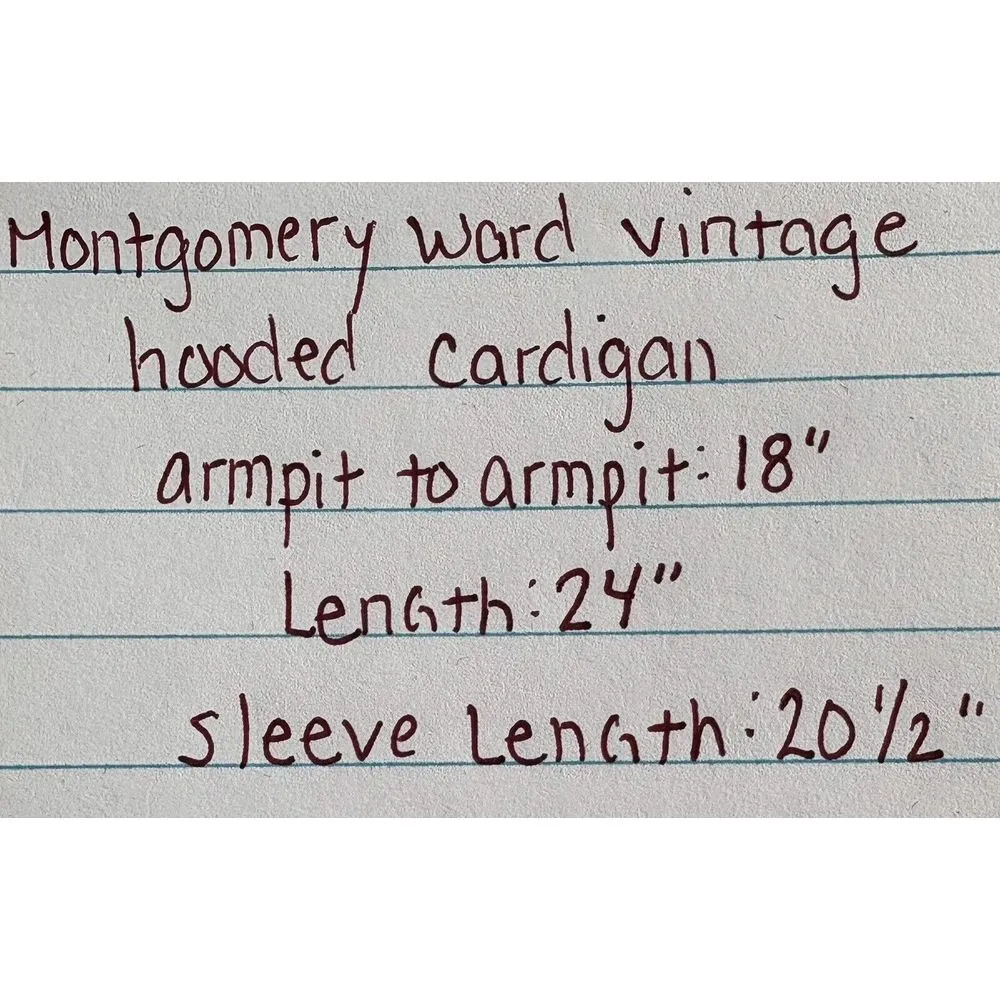 Montgomery Ward vintage
hooded cardigan
armpit to armpit: 18"
Length: 24"
sleeve Length: 20 1/2"